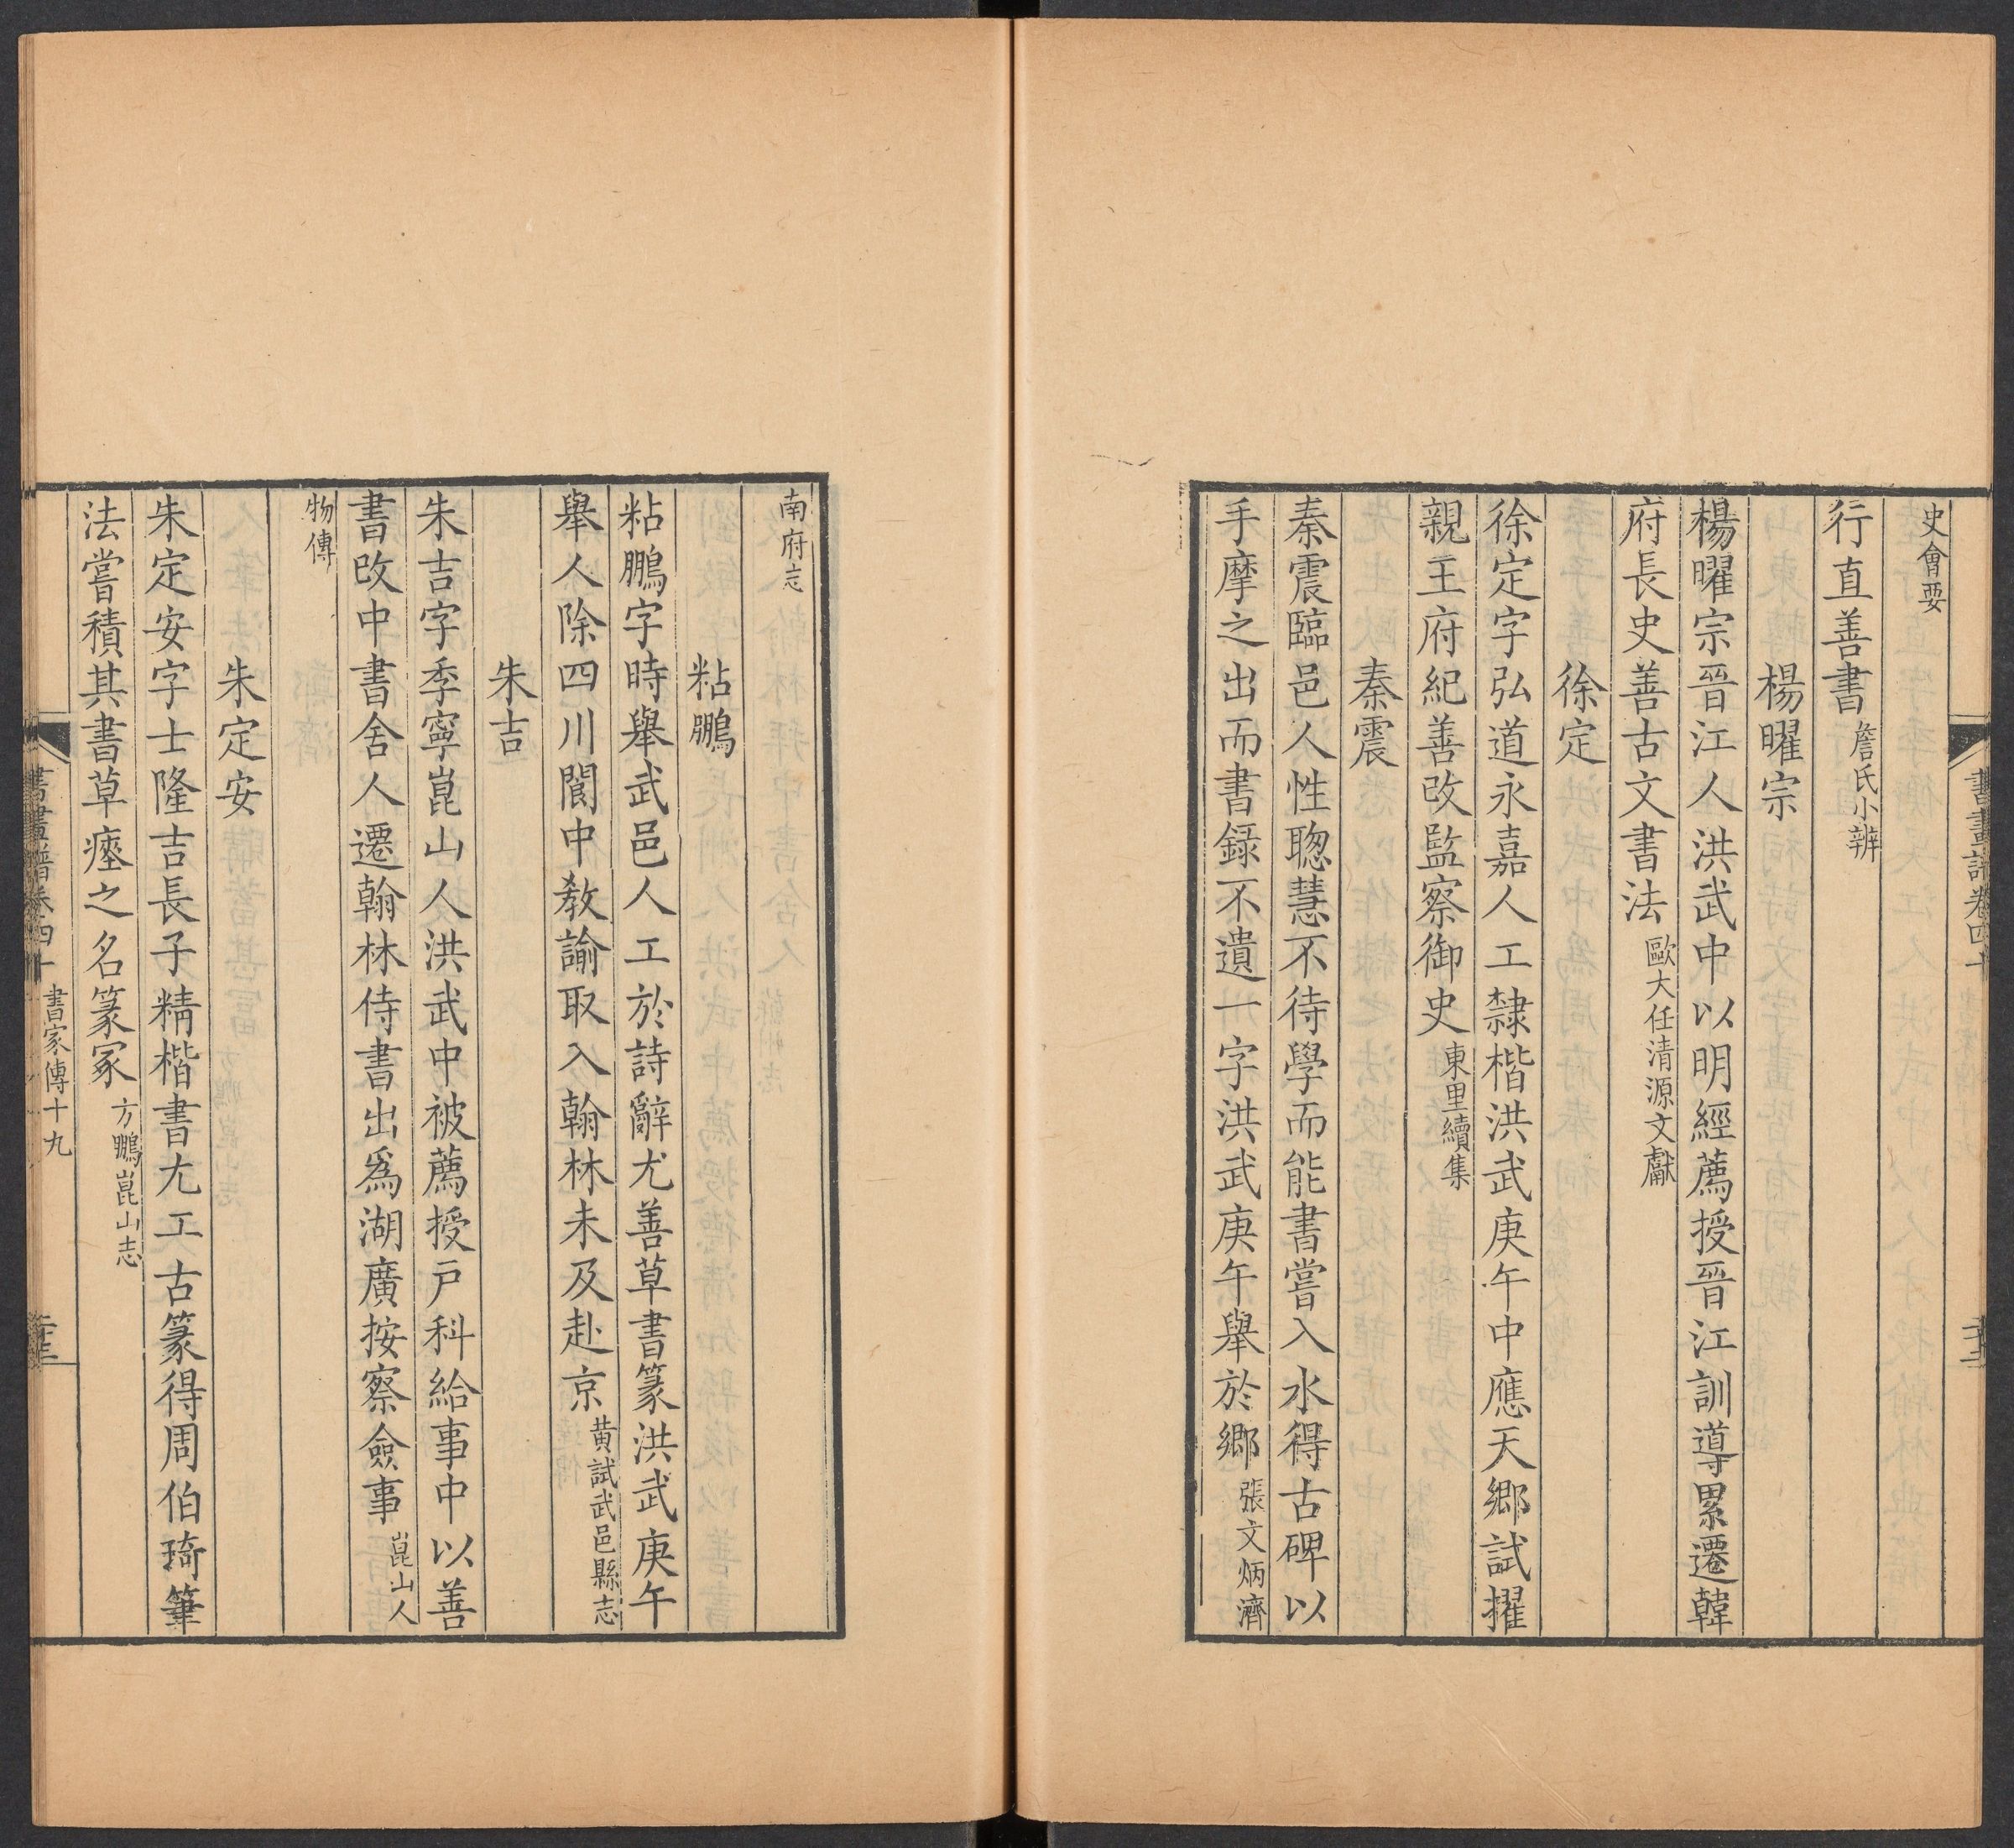 史會要
行直善書詹氏小辨
楊曜宗
楊曜宗晉江人洪武中以明經薦授晉江訓導累遷韓
府長史善古文書法歐大任清源文獻
徐定
徐定字弘道永嘉人工隸楷洪武庚午中應天鄉試擢
親王府紀善改監察御史東里續集
秦震
秦震臨邑人性聰慧不待學而能書嘗入水得古碑以
手摩之出而書録不遺一字洪武庚午舉於鄉張文炳濟
南府志
粘鵬
粘鵬字時舉武邑人工於詩辭尤善草書篆洪武庚午
舉人除四川閬中教諭取入翰林未及赴京黄試武邑縣志
朱吉
朱吉字季寧崑山人洪武中被薦授戸科給事中以善
書改中書舍人遷翰林侍書出爲湖廣按察僉事崑山人
物傳
朱定安
朱定安字士隆吉長子精楷書尤工古篆得周伯琦筆
法嘗積其書草瘞之名篆冢方鵬崑山志
書畫譜卷四十 書家傳十九